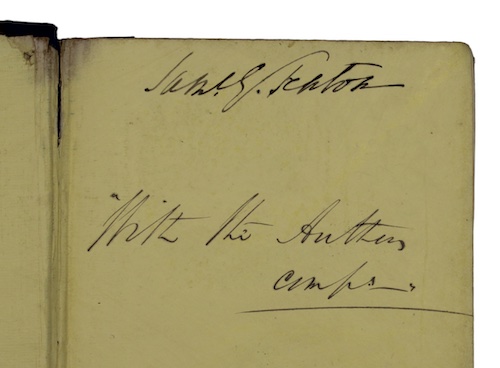 Saml. G. Fenton
With the Authors
comps.